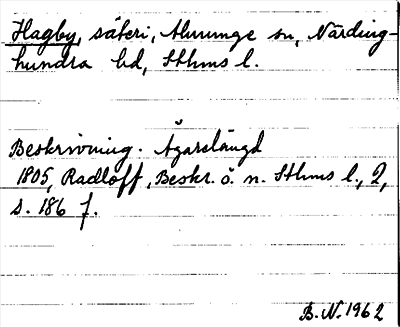 Hagby, säteri, Almunge sn, Närding-
hundra hd, Sthms l.
Beskrivning. Ägarelängd
1805, Radloff, Beskr. ö. n. Sthms l., 2,
s. 186 f.
B.N. 1962